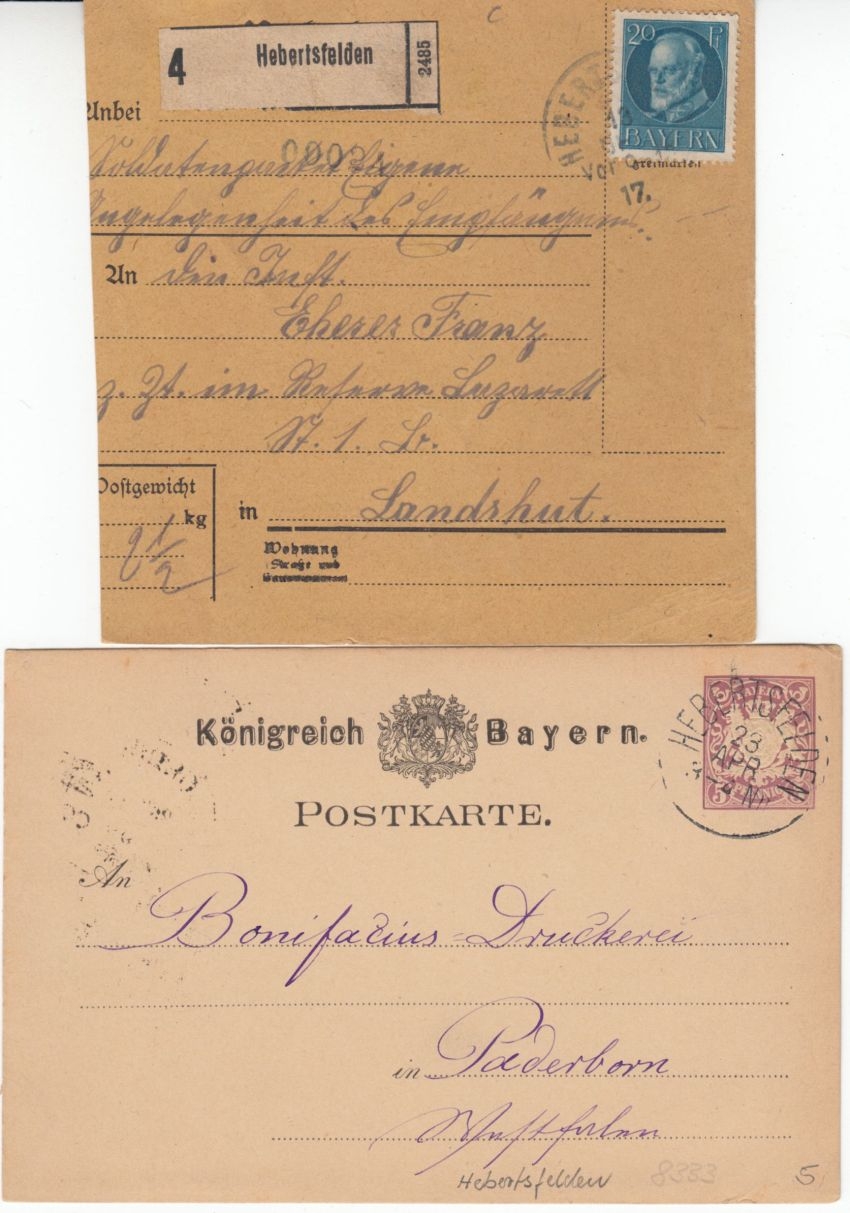 4 Hebertsfelden 2485
20 Pf
BAYERN
HEBERTS
Vorm.
17.
Freimarken
Unbei
00024
Soldatenpacket Eigene
Angelegenheit des Empfängers.
An den Inft.
Eherer Franz
z. Zt. im Reserve Lazarett
St. 1. Lr.
Postgewicht
kg
2 1/2
in Landshut.
Wohnung
Straße und
Hausnummer
Königreich Bayern.
HEBERTSFELDEN
23
APR
POSTKARTE.
An
Bonifacius-Druckerei
in Paderborn
Westfalen
Hebertsfelden 8333 5